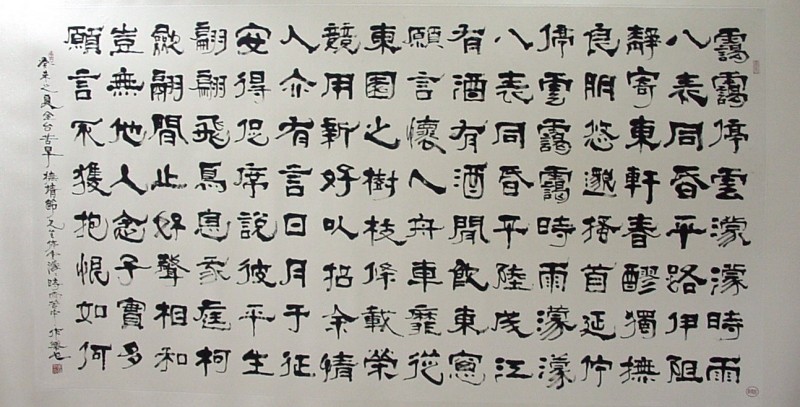 靄靄停雲濛濛時雨
八表同昏平路伊阻
靜寄東軒春醪獨撫
良朋悠邈搔首延佇
停雲靄靄時雨濛濛
八表同昏平陸成江
有酒有酒閒飲東窗
願言懷人舟車靡從
東園之樹枝條載榮
競用新好以招余情
人亦有言日月于征
安得促席說彼平生
翩翩飛鳥息我庭柯
斂翮閒止好聲相和
豈無他人念子實多
願言不獲抱恨如何
癸未之夏余台苦旱